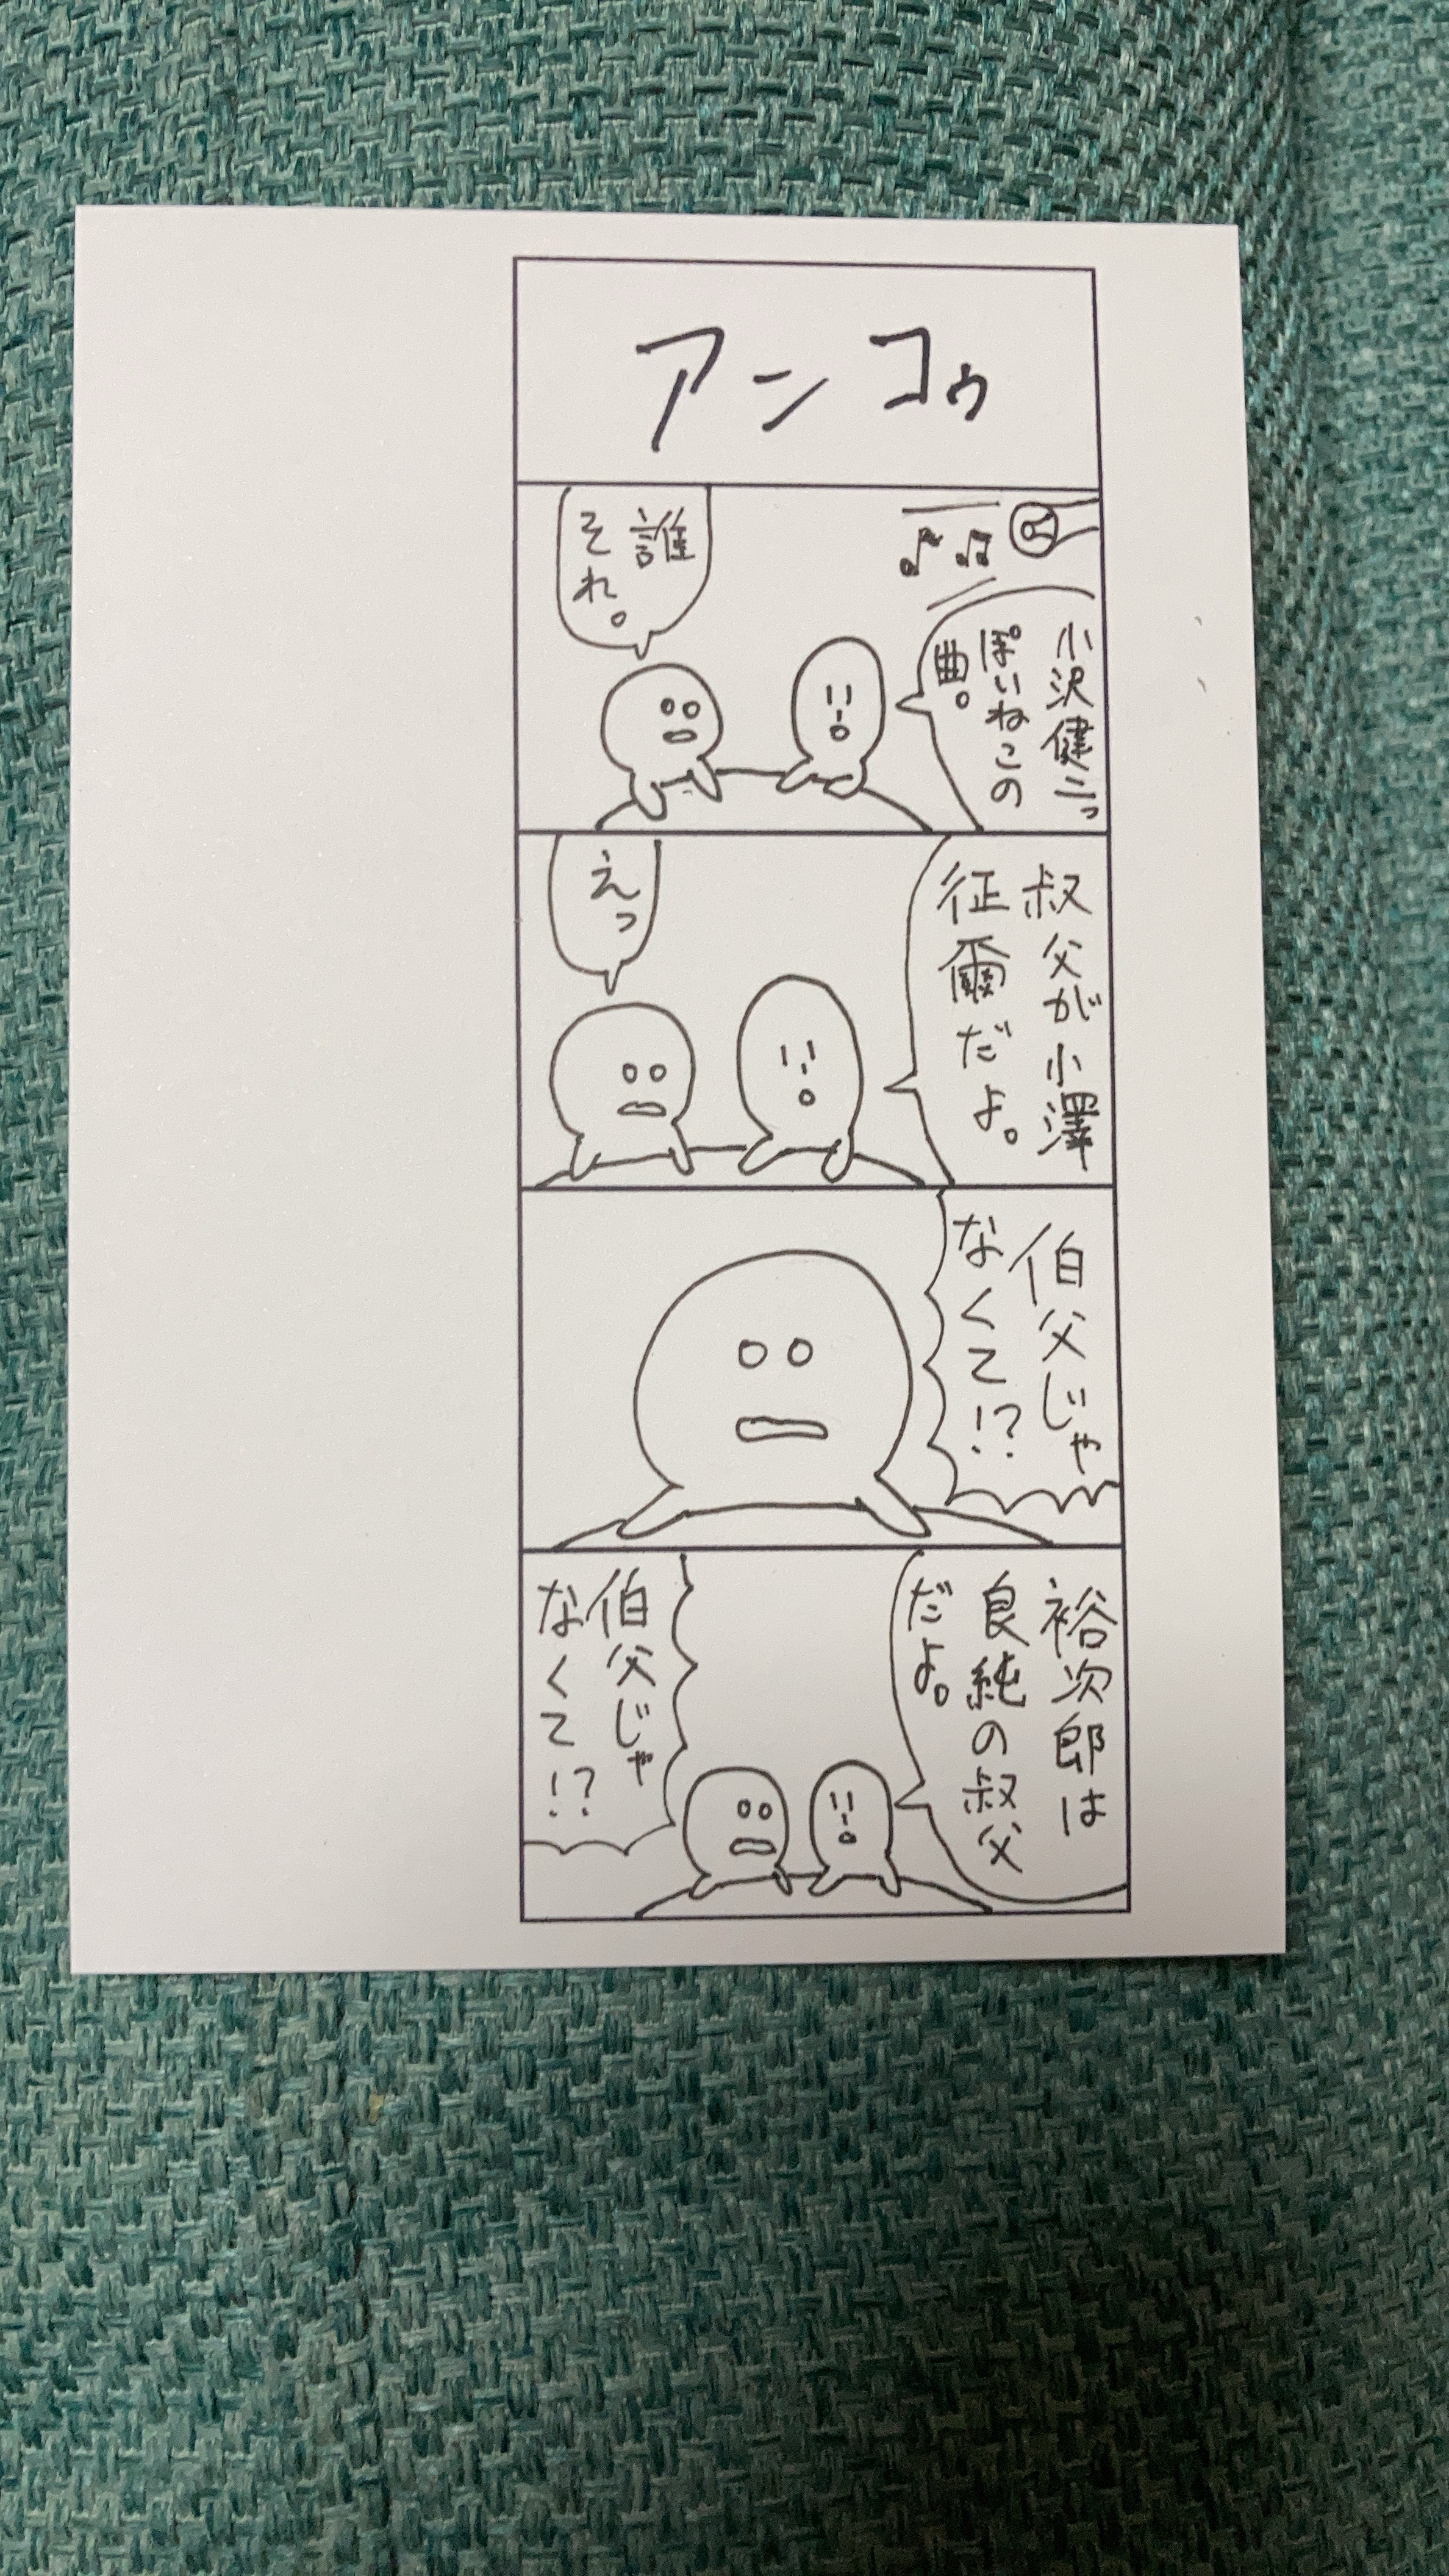 アンコゥ
小沢健二っ
ぽいねこの
曲。
誰
それ。
叔父が小澤
征爾だよ。
えっ
伯父じゃ
なくて!?
裕次郎は
良純の叔父
だよ。
伯父じゃ
なくて!?